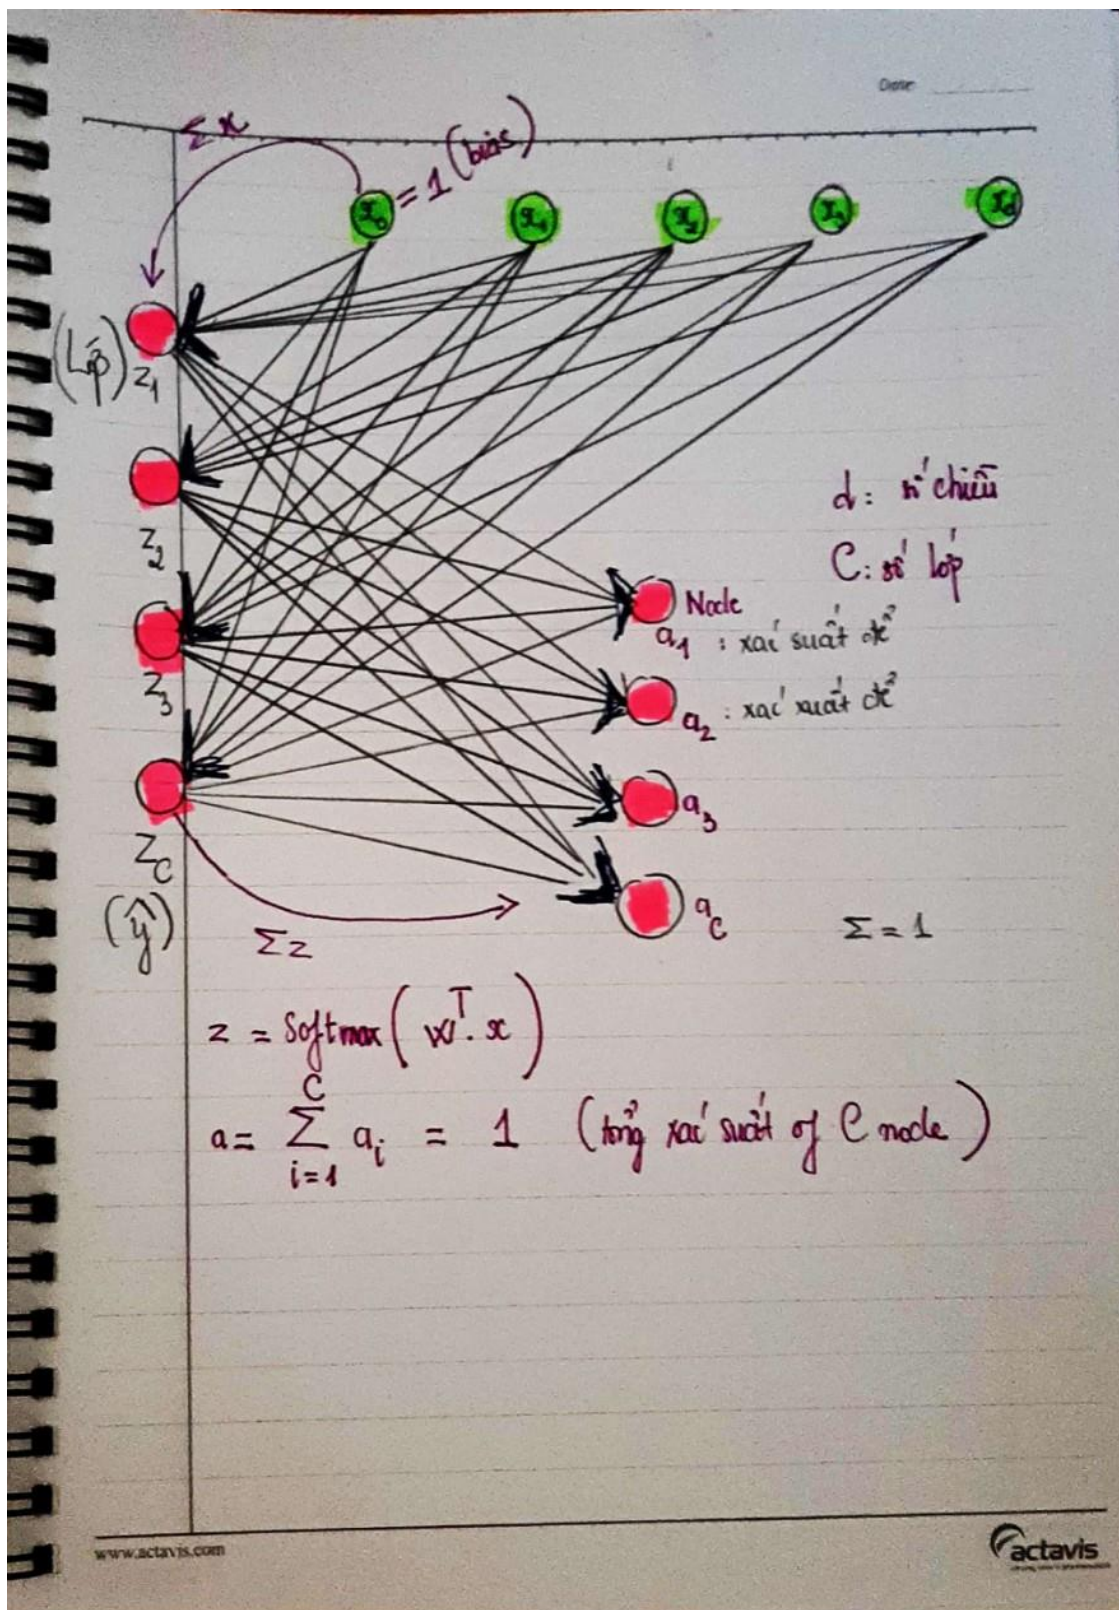 Date
Σx
x₀ = 1 (bias)
x₁
x₂
x₃
x_d
(Lớp)
z₁
z₂
z₃
z_C
(ŷ)
d: số chiều
C: số lớp
Node
a₁ : xác suất để
a₂ : xác xuất để
a₃
a_C
Σ = 1
Σz
z = Softmax(w^T. x)
a = Σ_{i=1}^{C} a_i = 1 (tổng xác suất of C node)
www.actavis.com
actavis